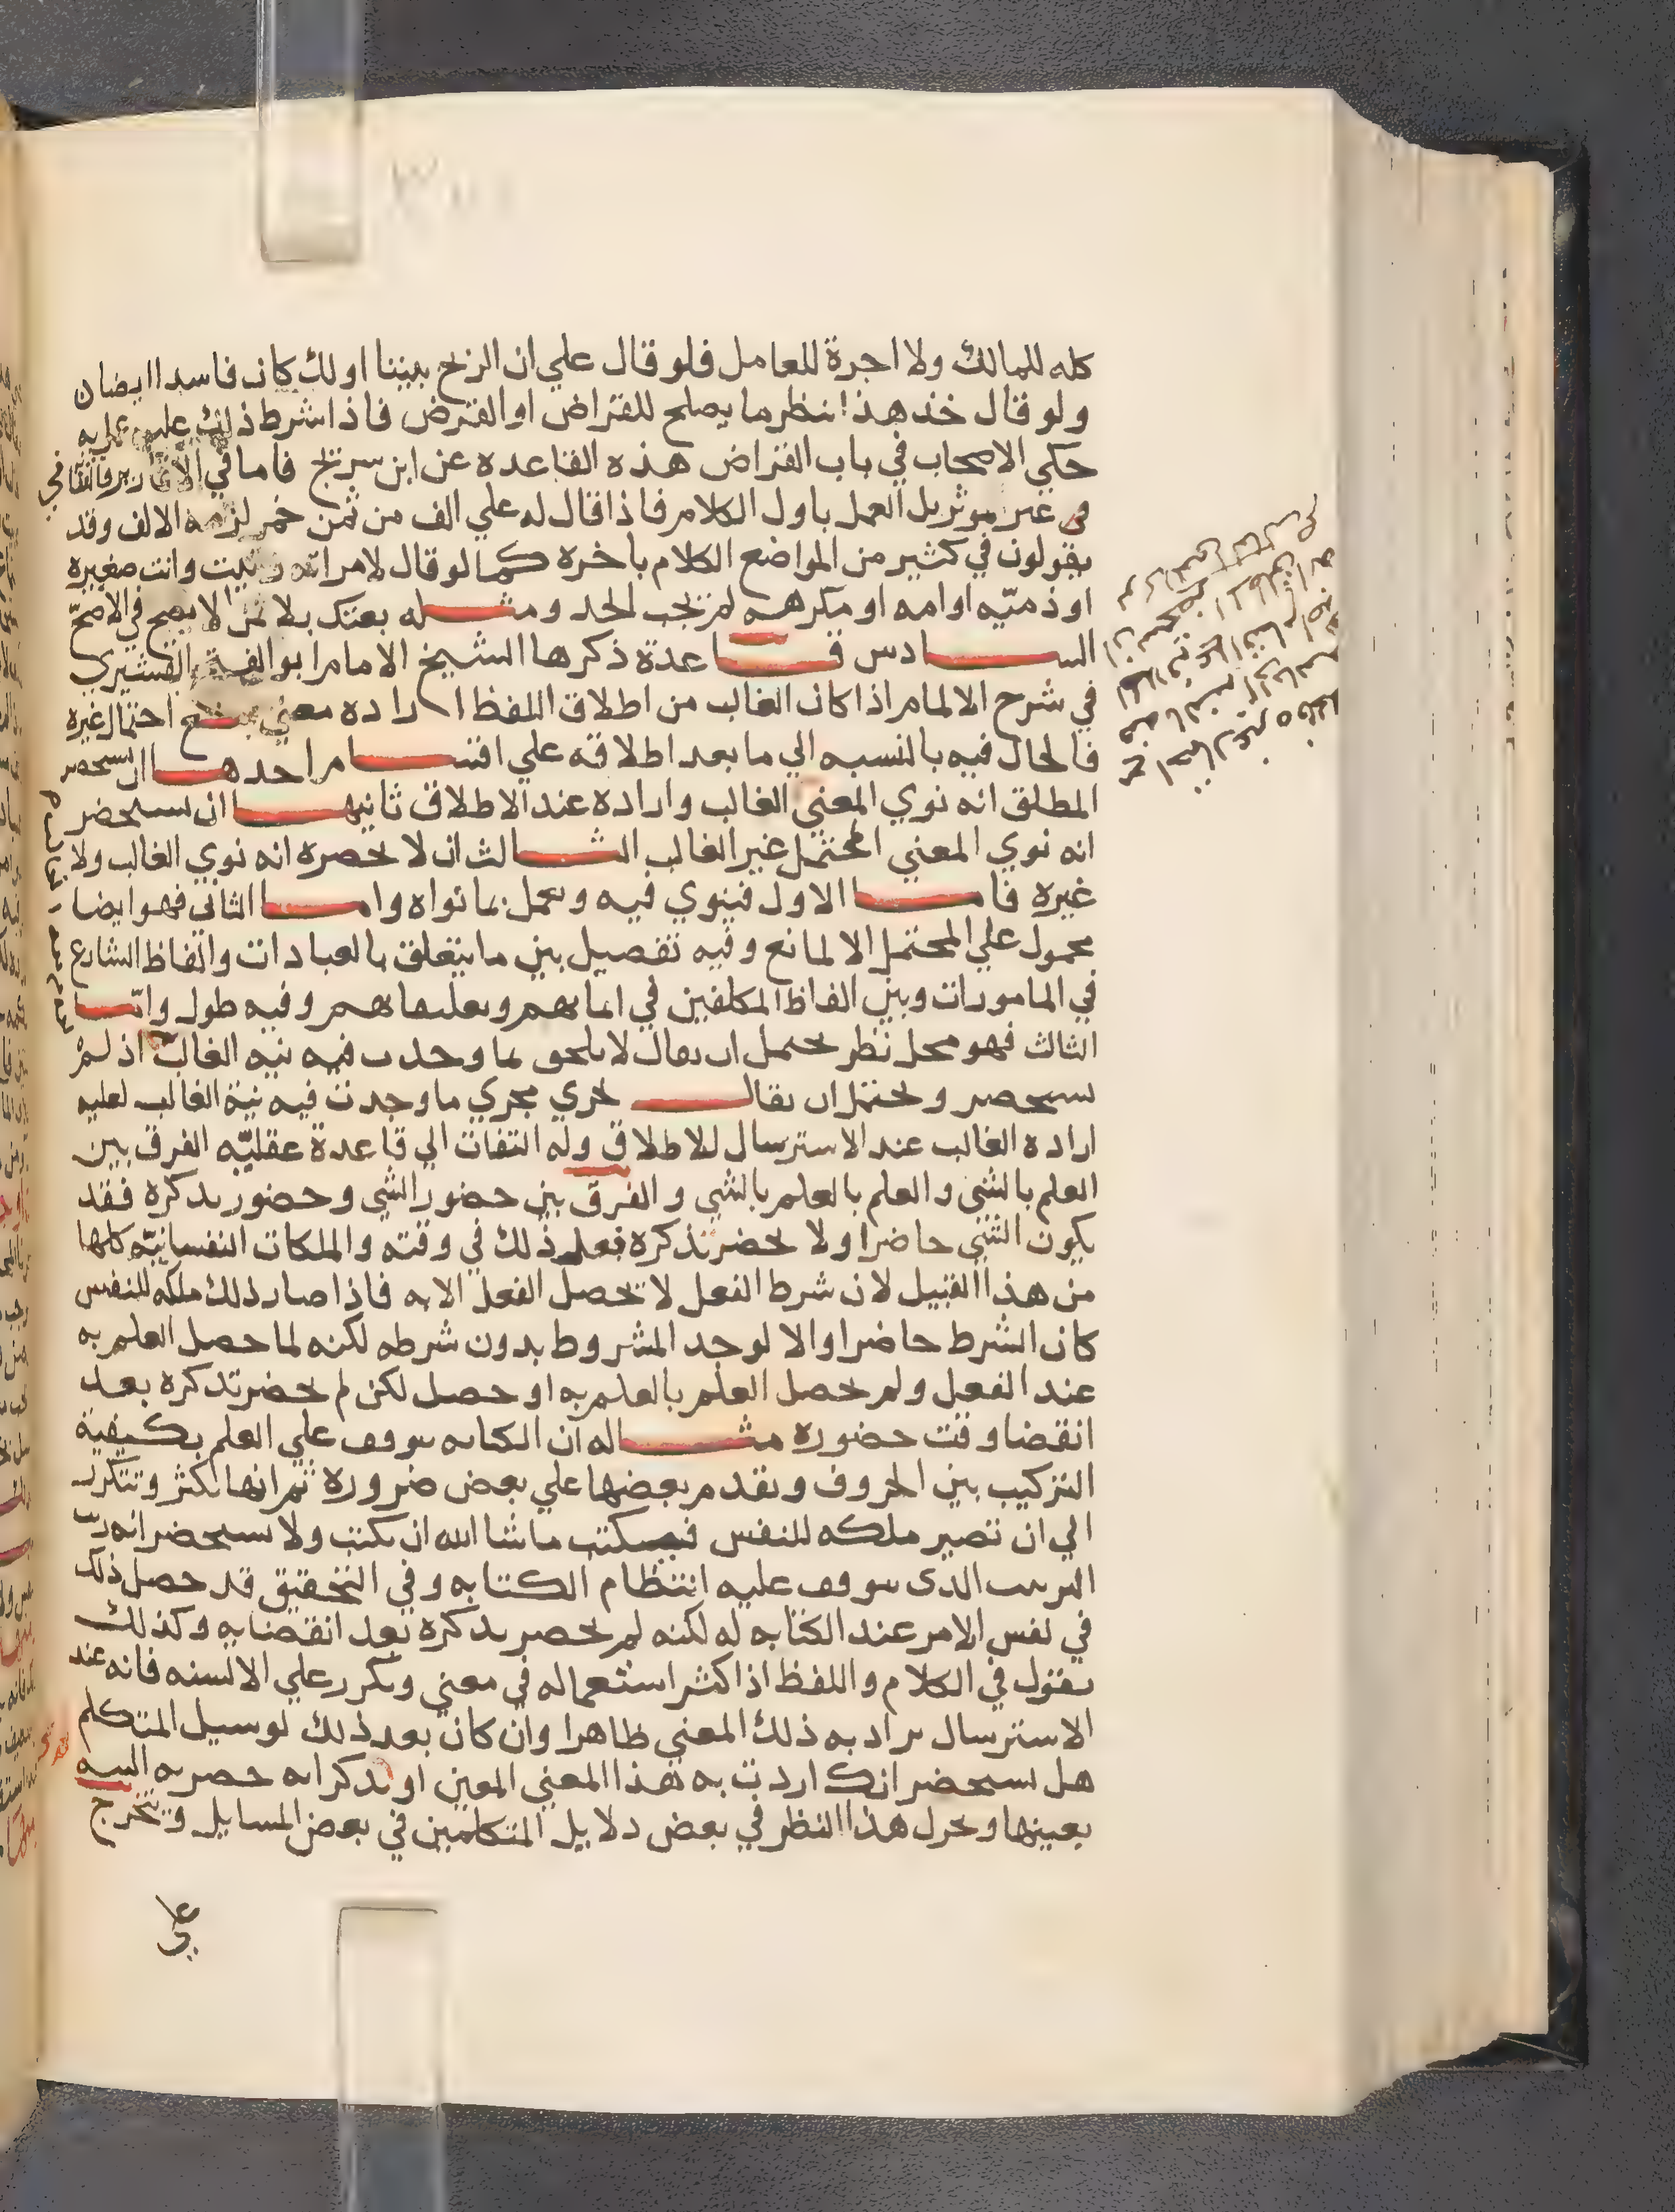 كله للمالك ولا اجرة للعامل فلو قال علي ان الربح بيننا او لك كان فاسدا ايضا ان
ولو قال خذ هذا انظر ما يصلح للقراض او القرض فاذا اشرط ذلك
حكي الاصحاب في باب القراض هذه القاعده عن ابن سريج فاما في الاقارير
غير موثر بل العمل باول الكلام فاذا قال له علي الف من ثمن خمر لزمه الالف وقد
يقولون في كثير من المواضع الكلام باخره كما لو قال لامراته زنيت وانت صغيره
او ذميّه او امه او مكرهه لم يجب الحد ومثله بعتك بلا ثمن لا يصح في الاصحّ
السادس قاعدة ذكرها الشيخ الامام ابو الفتح القشيري
في شرح الالمام اذا كان الغالب من اطلاق اللفظ اراده معني احتمال غيره
فالحال فيه بالنسبه الي ما بعد اطلاقه علي اقسام احدها ان يستحضر
المطلق انه نوي المعني الغالب واراده عند الاطلاق ثانيها ان يستحضر
انه نوي المعني المحتمل غير الغالب الثالث ان لا يحضره انه نوي الغالب ولا
غيره فاما الاول فينوي فيه ويعمل بما نواه واما الثاني فهو ايضا
محمول علي المحتمل الا لمانع وفيه تفصيل بين ما يتعلق بالعبادات والفاظ الشارع
في المامورات وبين الفاظ المكلفين في ايمانهم وتعليقاتهم وفيه طول وامّا
الثالث فهو محل نظر يحتمل ان يقال لا يلحق بما وجدت فيه نيه الغالب اذ لمْ
يستحضر ويحتمل ان يقال يجري مجري ما وجدت فيه نية الغالب لغلبه
اراده الغالب عند الاسترسال للاطلاق وله التفات الي قاعدة عقليّه الفرق بين
العلم بالشي والعلم بالعلم بالشي والفرق بين حضور الشي وحضور تذكره فقد
يكون الشي حاضرا ولا يحضر تذكره فعلم ذلك في وقته والملكات النفسانيّه كلها
من هذا القبيل لان شرط الفعل لا يحصل الفعل الا به فاذا صار ذلك ملكه للنفس
كان الشرط حاضرا والا لوجد المشروط بدون شرطه لكنه لما حصل العلم به
عند الفعل ولم يحصل العلم بالعلم به او حصل لكن لم يحضر تذكره بعد
انقضا وقت حضوره مثاله ان الكتابه موقوف علي العلم بكيفية
التركيب بين الحروف وتقدم بعضها علي بعض ضرورة ثم انها تكثر وتتكرر
الي ان تصير ملكه للنفس فيكتب ما شا الله ان يكتب ولا يستحضر انه رتب
الترتيب الذي يتوقف عليه انتظام الكتابه وفي التحقيق قد حصل ذلك
في نفس الامر عند الكتابه له لكنه لم يحضر تذكره بعد انقضايه وكذلك
نقول في الكلام واللفظ اذا كثر استعماله في معني وتكرر علي الالسنه فانه عند
الاسترسال يراد به ذلك المعني ظاهرا وان كان بعد ذلك لو سيل المتكلم
هل تستحضر انك اردت به هذا المعني المعين او تذكر انه حضر به النيه
بعينها هذا النظر في بعض دلايل المتكلمين في بعض المسايل وتخرج
علي